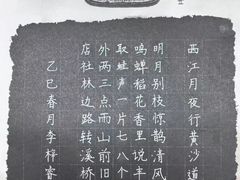 西江月夜行黄沙道
明月别枝惊鹊清风
鸣蝉稻花香里说丰
取蛙声一片七八个
外两三点雨山前旧
店社林边路转溪桥
乙巳春月李梓睿